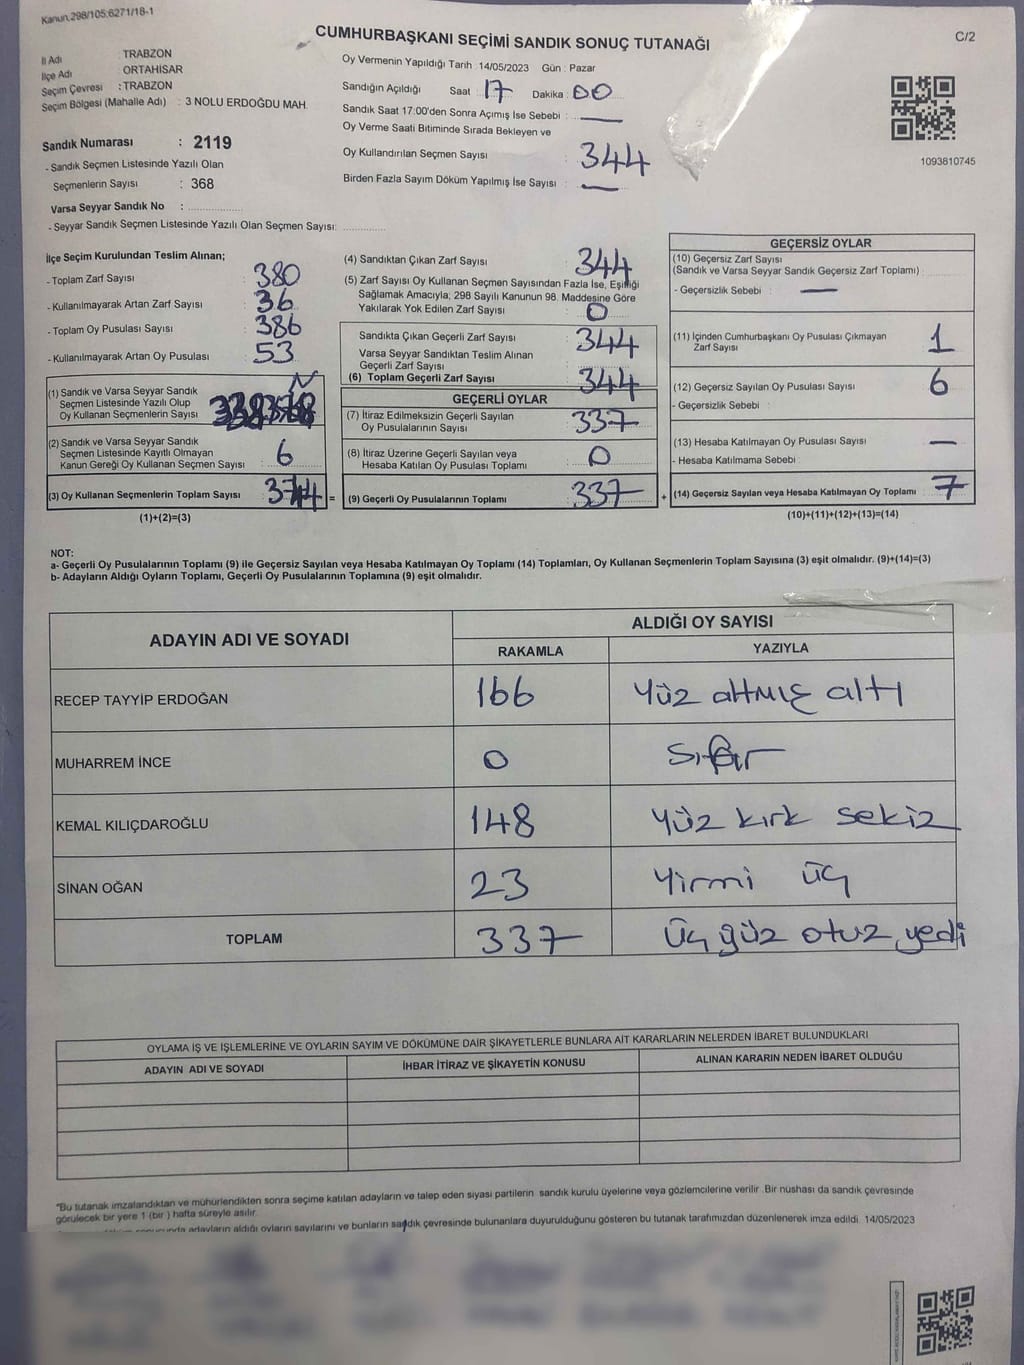 Kanun.298/105:6271/18-1
CUMHURBAŞKANI SEÇİMİ SANDIK SONUÇ TUTANAĞI
C/2
İl Adı : TRABZON
İlçe Adı : ORTAHİSAR
Seçim Çevresi : TRABZON
Seçim Bölgesi (Mahalle Adı) : 3 NOLU ERDOĞDU MAH.
Oy Vermenin Yapıldığı Tarih : 14/05/2023 Gün : Pazar
Sandığın Açıldığı Saat : 17 Dakika : 00
Sandık Saat 17:00'den Sonra Açımış İse Sebebi :
Oy Verme Saati Bitiminde Sırada Bekleyen ve
Oy Kullandırılan Seçmen Sayısı : 344
Birden Fazla Sayım Döküm Yapılmış İse Sayısı : —
1093810745
Sandık Numarası : 2119
- Sandık Seçmen Listesinde Yazılı Olan
Seçmenlerin Sayısı : 368
Varsa Seyyar Sandık No :
- Seyyar Sandık Seçmen Listesinde Yazılı Olan Seçmen Sayısı:
İlçe Seçim Kurulundan Teslim Alınan;
- Toplam Zarf Sayısı : 380
- Kullanılmayarak Artan Zarf Sayısı : 36
- Toplam Oy Pusulası Sayısı : 386
- Kullanılmayarak Artan Oy Pusulası : 53
(1) Sandık ve Varsa Seyyar Sandık
Seçmen Listesinde Yazılı Olup
Oy Kullanan Seçmenlerin Sayısı
(2) Sandık ve Varsa Seyyar Sandık
Seçmen Listesinde Kayıtlı Olmayan
Kanun Gereği Oy Kullanan Seçmen Sayısı : 6
(3) Oy Kullanan Seçmenlerin Toplam Sayısı
(1)+(2)=(3)
(4) Sandıktan Çıkan Zarf Sayısı : 344
(5) Zarf Sayısı Oy Kullanan Seçmen Sayısından Fazla İse, Eşitliği
Sağlamak Amacıyla; 298 Sayılı Kanunun 98. Maddesine Göre
Yakılarak Yok Edilen Zarf Sayısı : 0
Sandıkta Çıkan Geçerli Zarf Sayısı : 344
Varsa Seyyar Sandıktan Teslim Alınan
Geçerli Zarf Sayısı :
(6) Toplam Geçerli Zarf Sayısı : 344
GEÇERLİ OYLAR
(7) İtiraz Edilmeksizin Geçerli Sayılan
Oy Pusulalarının Sayısı : 337
(8) İtiraz Üzerine Geçerli Sayılan veya
Hesaba Katılan Oy Pusulası Toplamı : 0
= (9) Geçerli Oy Pusulalarının Toplamı : 337 +
GEÇERSİZ OYLAR
(10) Geçersiz Zarf Sayısı
(Sandık ve Varsa Seyyar Sandık Geçersiz Zarf Toplamı) :
- Geçersizlik Sebebi : —
(11) İçinden Cumhurbaşkanı Oy Pusulası Çıkmayan
Zarf Sayısı : 1
(12) Geçersiz Sayılan Oy Pusulası Sayısı : 6
- Geçersizlik Sebebi :
(13) Hesaba Katılmayan Oy Pusulası Sayısı : —
- Hesaba Katılmama Sebebi :
(14) Geçersiz Sayılan veya Hesaba Katılmayan Oy Toplamı : 7
(10)+(11)+(12)+(13)=(14)
NOT:
a- Geçerli Oy Pusulalarının Toplamı (9) ile Geçersiz Sayılan veya Hesaba Katılmayan Oy Toplamı (14) Toplamları, Oy Kullanan Seçmenlerin Toplam Sayısına (3) eşit olmalıdır. (9)+(14)=(3)
b- Adayların Aldığı Oyların Toplamı, Geçerli Oy Pusulalarının Toplamına (9) eşit olmalıdır.
ADAYIN ADI VE SOYADI
ALDIĞI OY SAYISI
RAKAMLA YAZIYLA
RECEP TAYYİP ERDOĞAN 166 Yüz altmış altı
MUHARREM İNCE 0 Sıfır
KEMAL KILIÇDAROĞLU 148 Yüz kırk sekiz
SİNAN OĞAN 23 Yirmi üç
TOPLAM 337 Üç yüz otuz yedi
OYLAMA İŞ VE İŞLEMLERİNE VE OYLARIN SAYIM VE DÖKÜMÜNE DAİR ŞİKAYETLERLE BUNLARA AİT KARARLARIN NELERDEN İBARET BULUNDUKLARI
ADAYIN ADI VE SOYADI İHBAR İTİRAZ VE ŞİKAYETİN KONUSU ALINAN KARARIN NEDEN İBARET OLDUĞU
"Bu tutanak imzalandıktan ve mühürlendikten sonra seçime katılan adayların ve talep eden siyasi partilerin sandık kurulu üyelerine veya gözlemcilerine verilir .Bir nüshası da sandık çevresinde
görülecek bir yere 1 (bir ) hafta süreyle asılır.
adayların aldığı oyların sayılarını ve bunların sandık çevresinde bulunanlara duyurulduğunu gösteren bu tutanak tarafımızdan düzenlenerek imza edildi. 14/05/2023